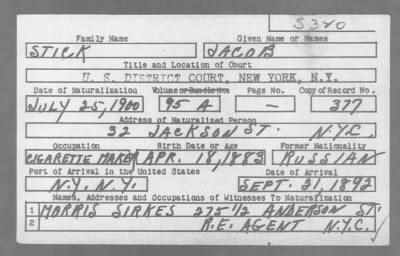 S320
Family Name Given Name or Names
STICK JACOB
Title and Location of Court
U. S. DISTRICT COURT, NEW YORK, N.Y.
Date of Naturalization Volume or Bundle No. Page No. Copy of Record No.
JULY 25, 1900 95 A — 377
Address of Naturalized Person
32 JACKSON ST. N.Y.C.
Occupation Birth Date or Age Former Nationality
CIGARETTE MAKER APR. 18, 1883 RUSSIAN
Port of Arrival in the United States Date of Arrival
N.Y. N.Y. SEPT. 21, 1892
Names, Addresses and Occupations of Witnesses To Naturalization
1 MORRIS SIRKES 275 1/2 ANDERSON ST.
2 R.E. AGENT N.Y.C.